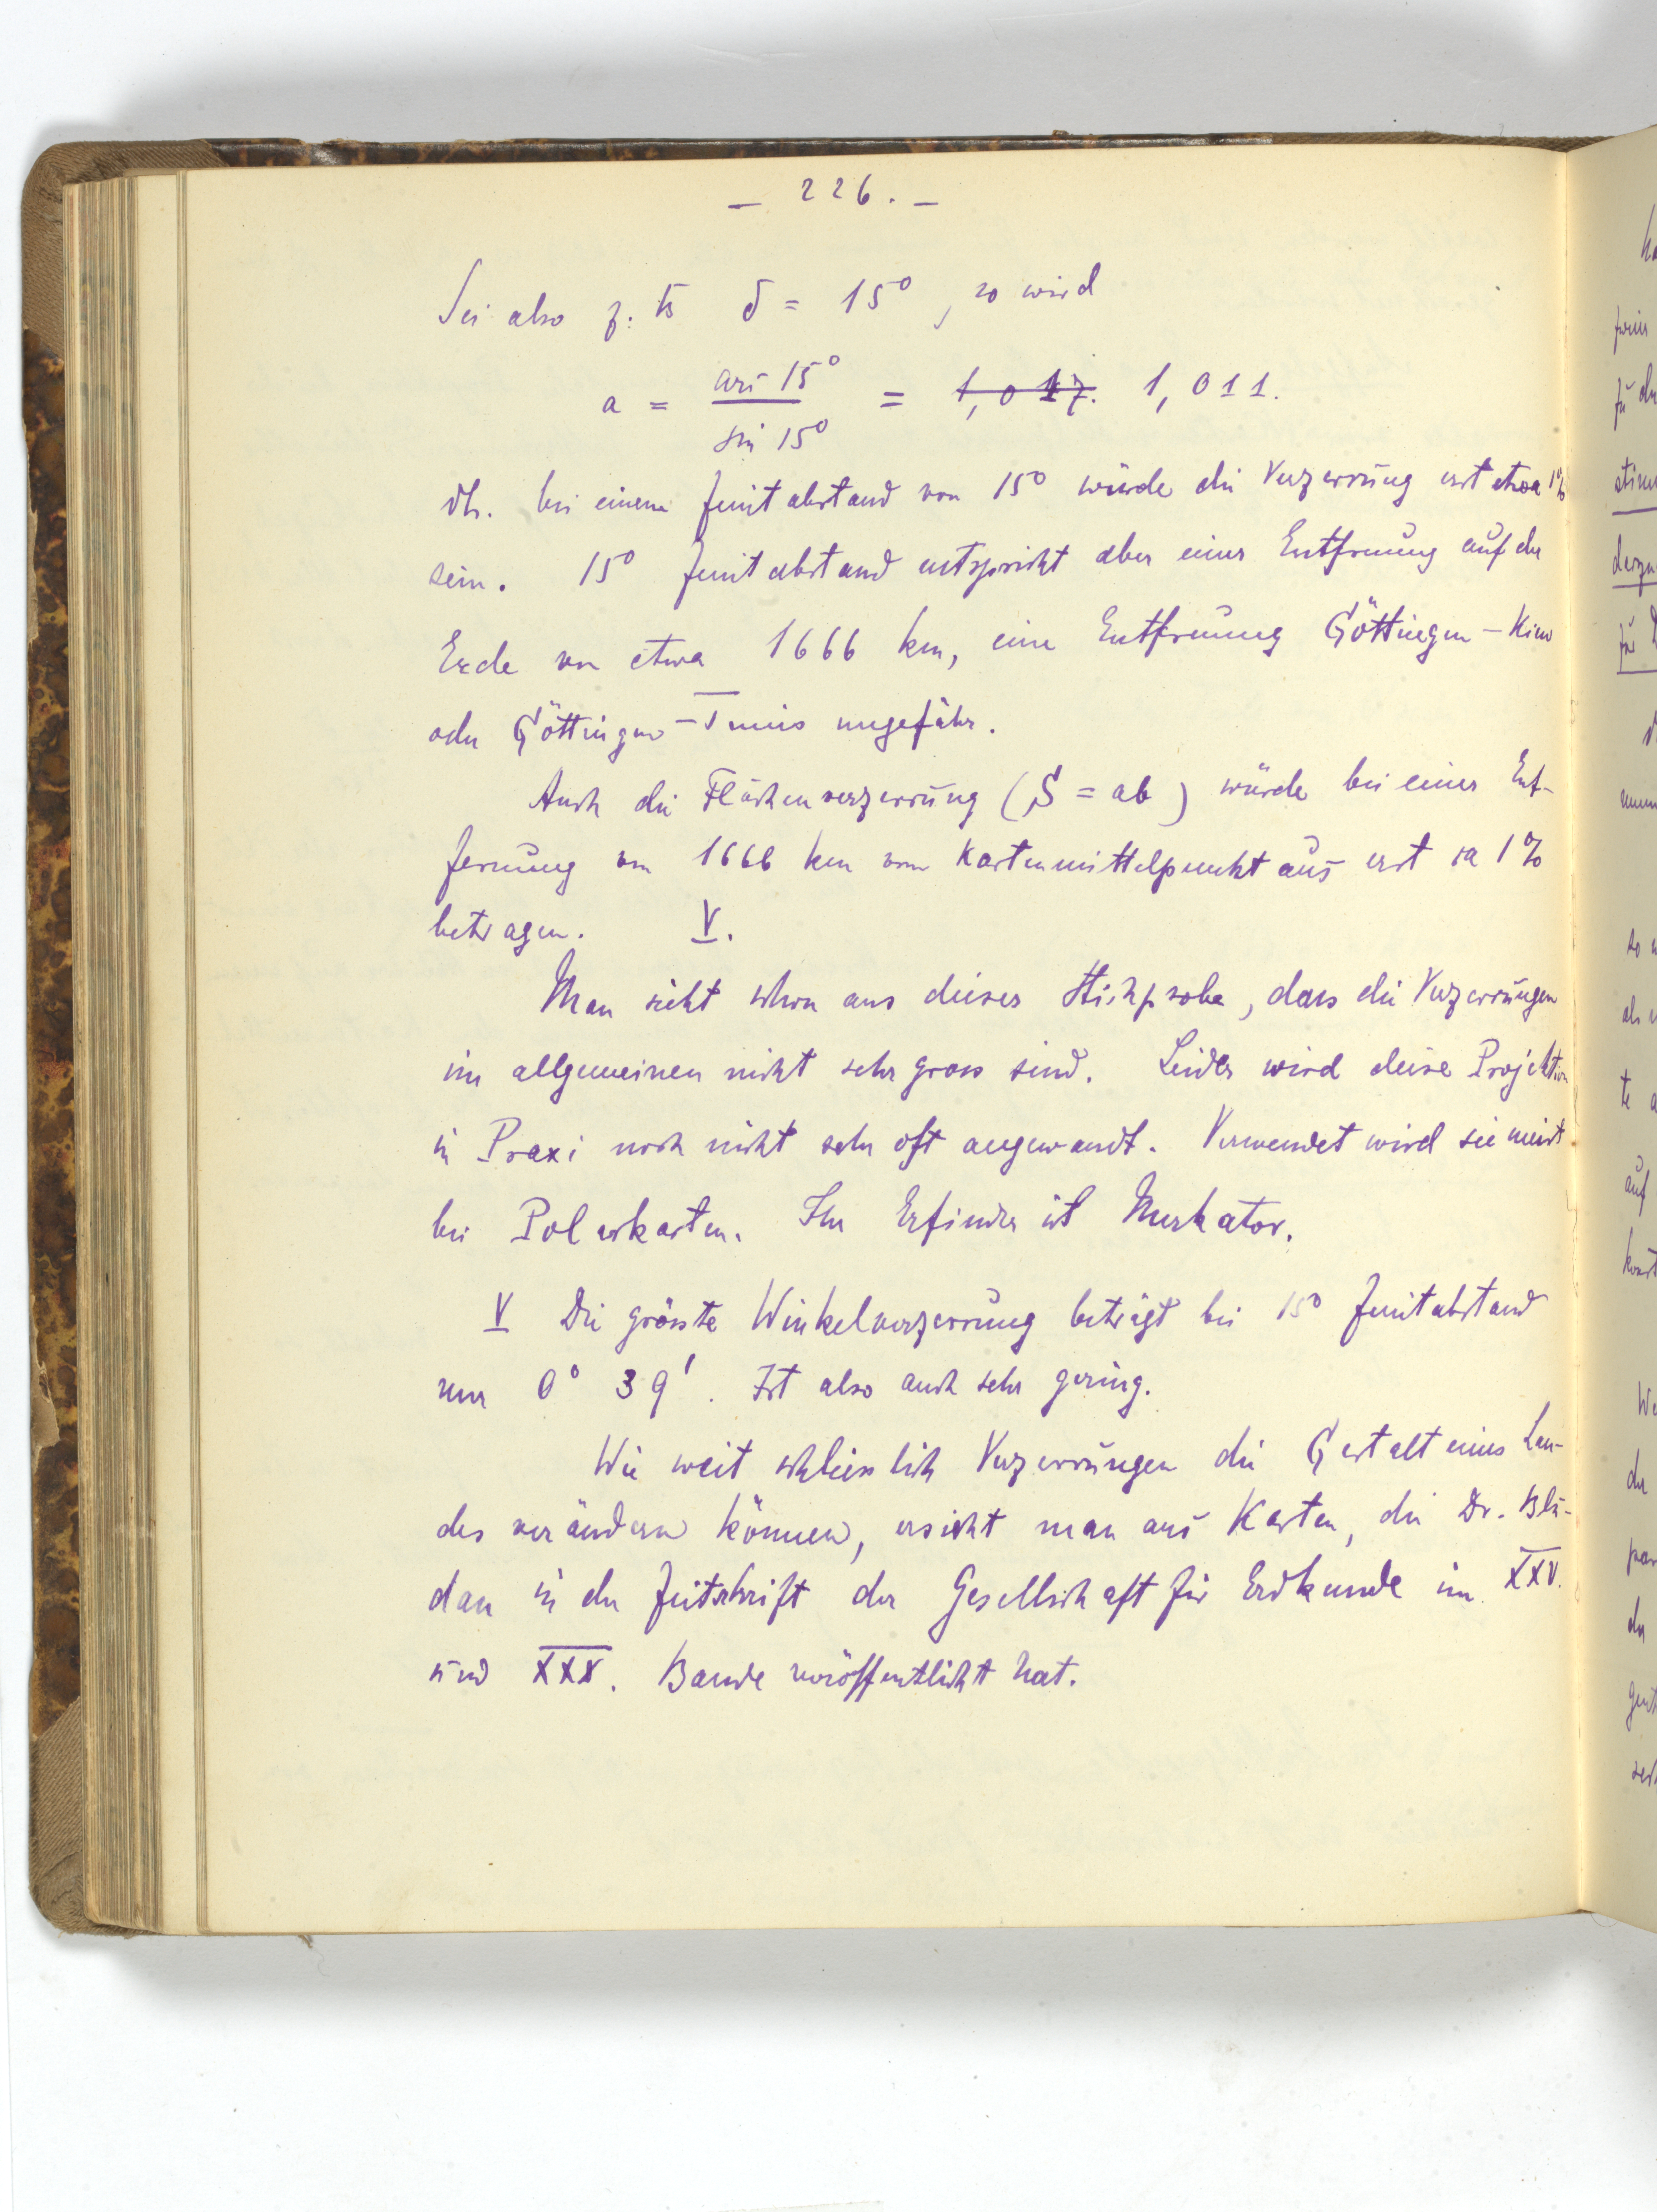 — 226. —
Sei also z. B δ = 15°, so wird
a = arc 15° / sin 15° = 1,017. 1,011.
dh. bei einem Zenitabstand von 15° würde die Verzerrung erst etwa 1%
sein. 15° Zenitabstand entspricht aber einer Entfernung auf der
Erde von etwa 1666 km, eine Entfernung Göttingen – Kiew
oder Göttingen – Tunis ungefähr.
Auch die Flächenverzerrung (S = ab) würde bei einer Ent-
fernung von 1666 km vom Kartenmittelpunkt aus erst ca 1%
betragen. V.
Man sieht schon aus dieser Stichprobe, dass die Verzerrungen
im allgemeinen nicht sehr gross sind. Leider wird diese Projektion
in Praxi noch nicht sehr oft angewandt. Verwendet wird sie meist
bei Polarkarten. Ihr Erfinder ist Merkator.
V Die grösste Winkelverzerrung beträgt bei 15° Zenitabstand
nur 0° 39'. Ist also auch sehr gering.
Wie weit schliesslich Verzerrungen die Gestalt eines Lan-
des verändern können, ersieht man aus Karten, die Dr. Blu-
dau in der Zeitschrift der Gesellschaft für Erdkunde im XXV.
und XXX. Bande veröffentlicht hat.